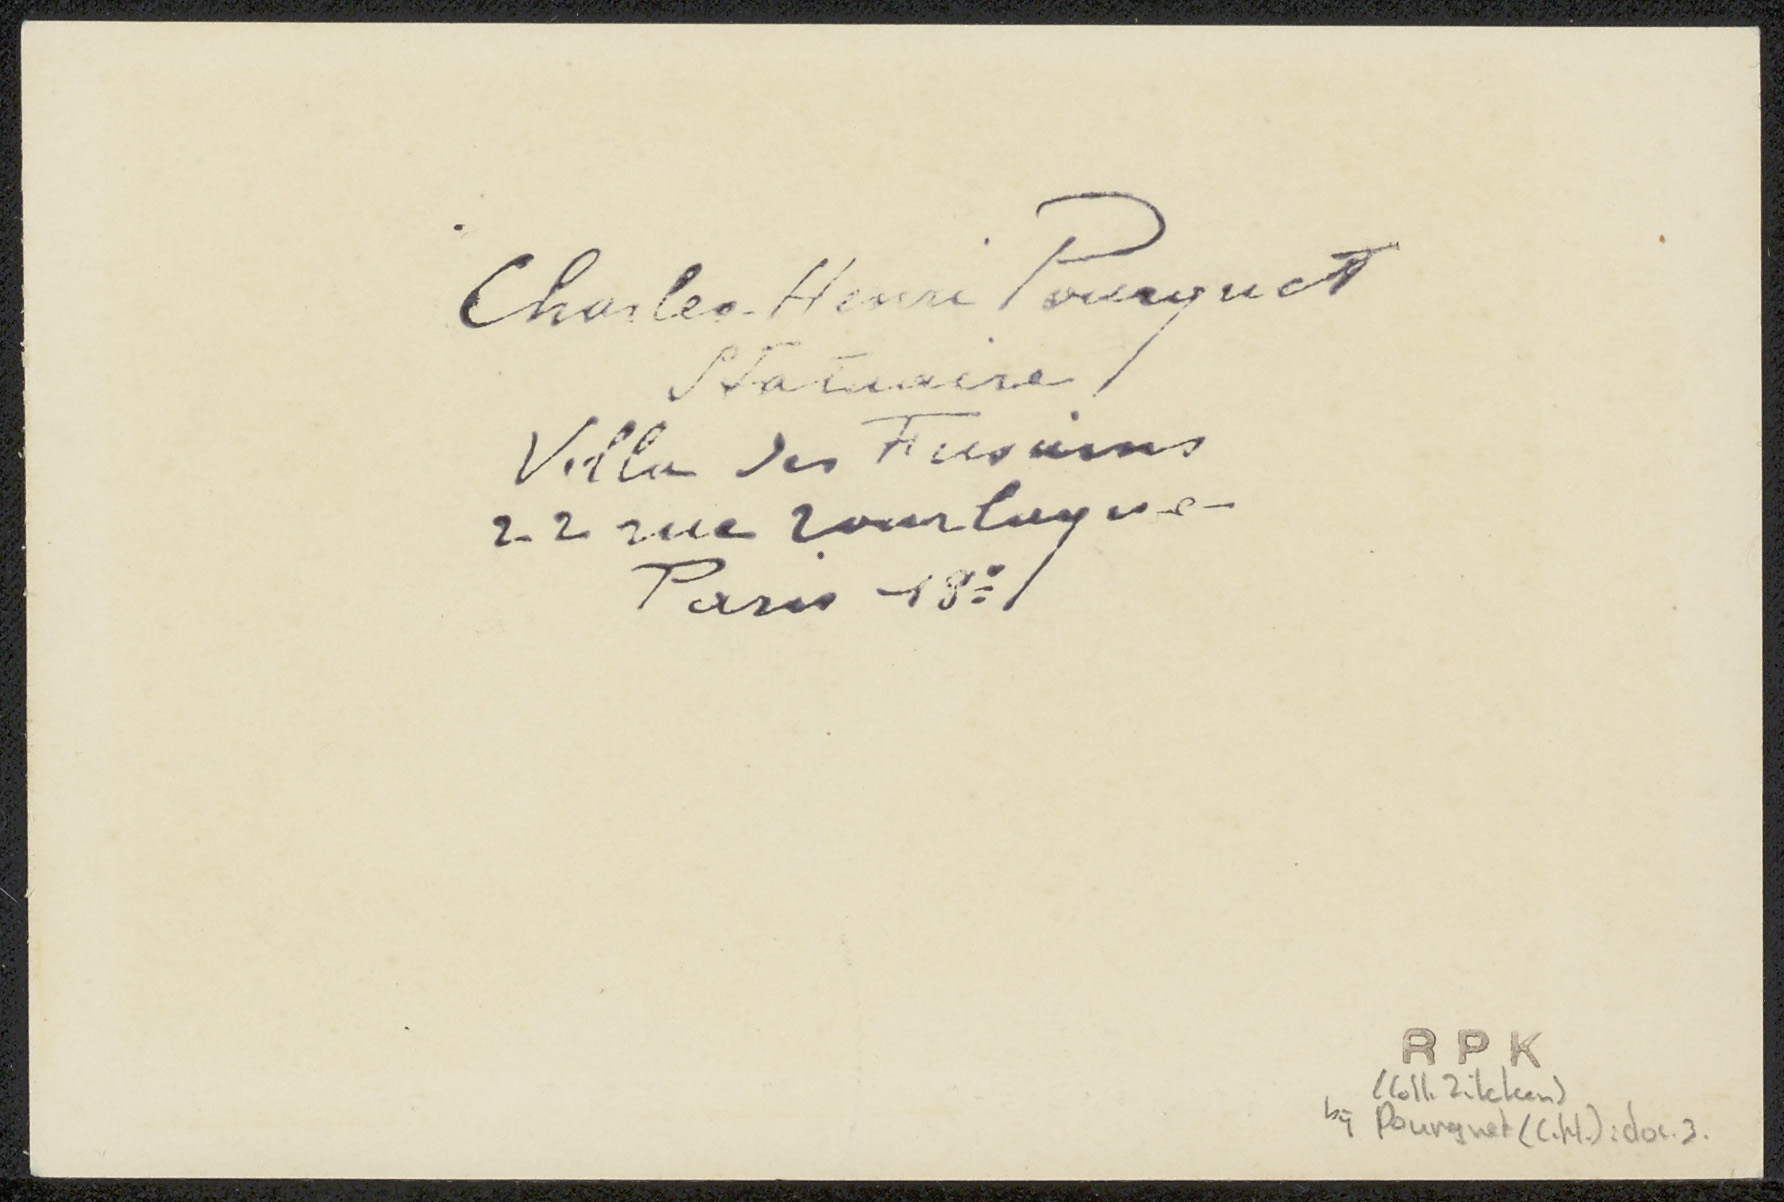 Charles-Henri Pourquet
Statuaire
Villa des Fusains
22 rue Tourlaque
Paris-18e
RPK
(Coll. Zilcken)
bij Pourquet (C.H.): doc. 3.